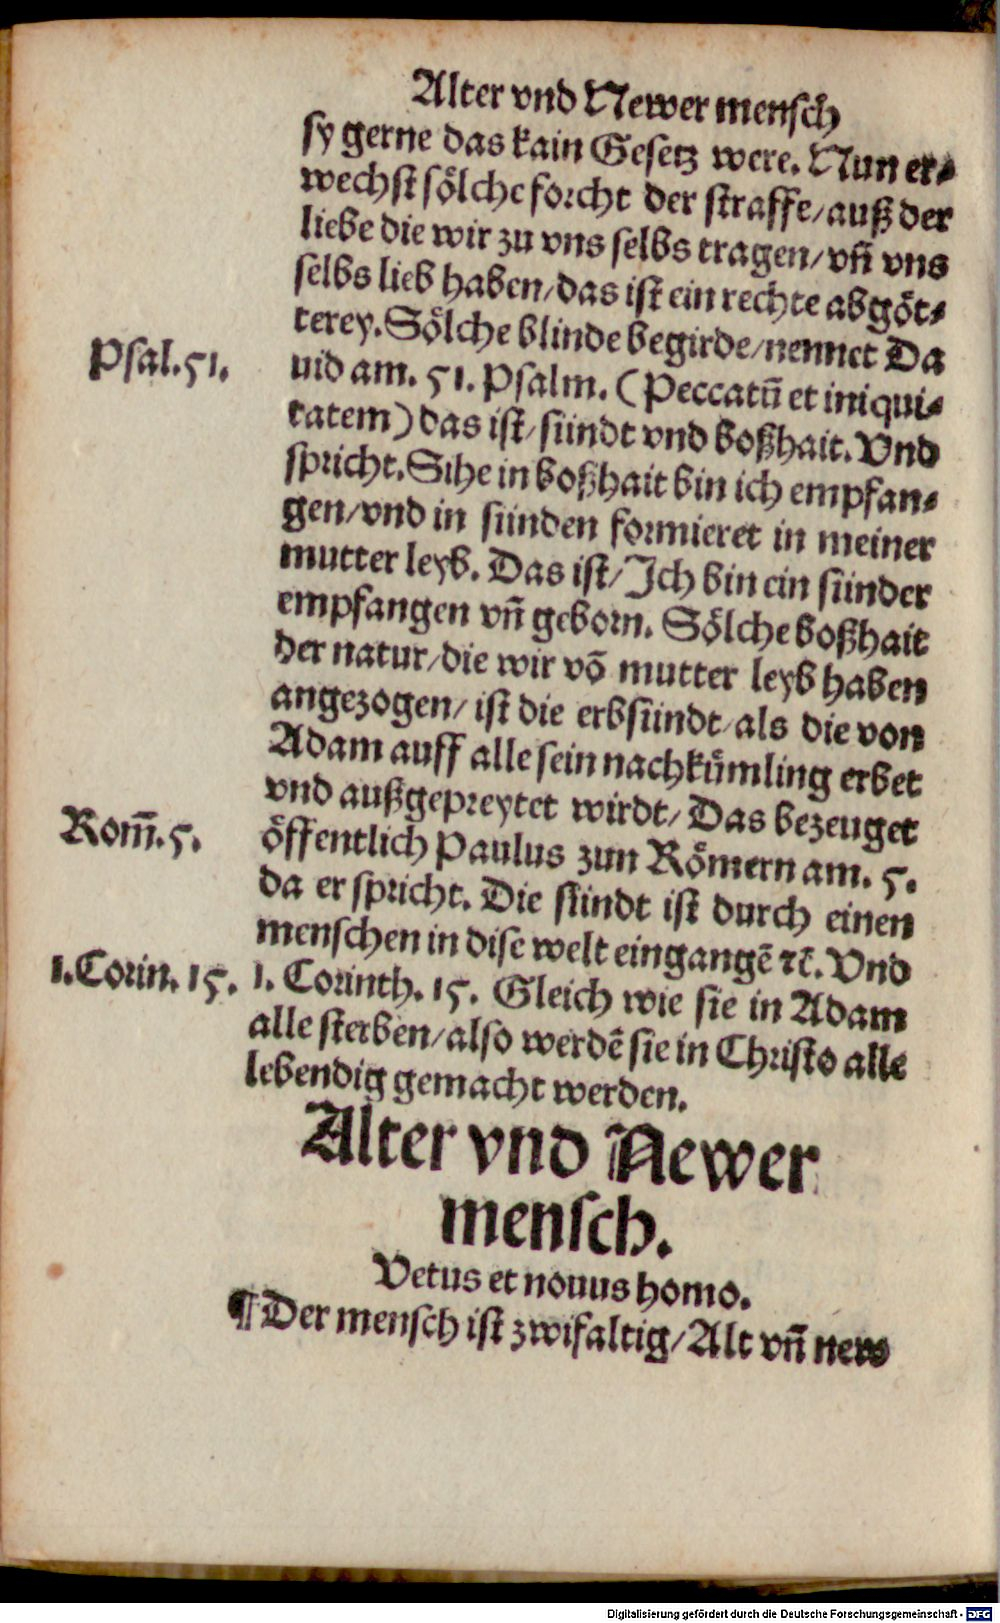 Alter vnd Newer mensch
sy gerne das kain Gesetz were. Nun er⸗
wechst sölche forcht der straffe/auß der
liebe die wir zu vns selbs tragen/vñ vns
selbs lieb haben/das ist ein rechte abgöt⸗
terey. Sölche blinde begirde/nennet Da
Psal. 51. uid am. 51. Psalm. (Peccatū et iniqui⸗
tatem) das ist/sündt vnd boßhait. Vnd
spricht. Sihe in boßhait bin ich empfan⸗
gen/vnd in sünden formieret in meiner
mutter leyb. Das ist/Ich bin ein sünder
empfangen vñ geborn. Sölche boßhait
der natur/die wir vō mutter leyb haben
angezogen/ist die erbsündt/als die von
Adam auff alle sein nachkümling erbet
vnd außgepreytet wirdt/Das bezeuget
Rom̃. 5. öffentlich Paulus zun Römern am. 5.
da er spricht. Die sündt ist durch einen
menschen in dise welt eingangē ⁊c̄. Vnd
1. Corin. 15. 1. Corinth. 15. Gleich wie sie in Adam
alle sterben/also werdē sie in Christo alle
lebendig gemacht werden.
Alter vnd Newer
mensch.
Vetus et nouus homo.
¶ Der mensch ist zwifaltig/Alt vñ new
Digitalisierung gefördert durch die Deutsche Forschungsgemeinschaft - DFG